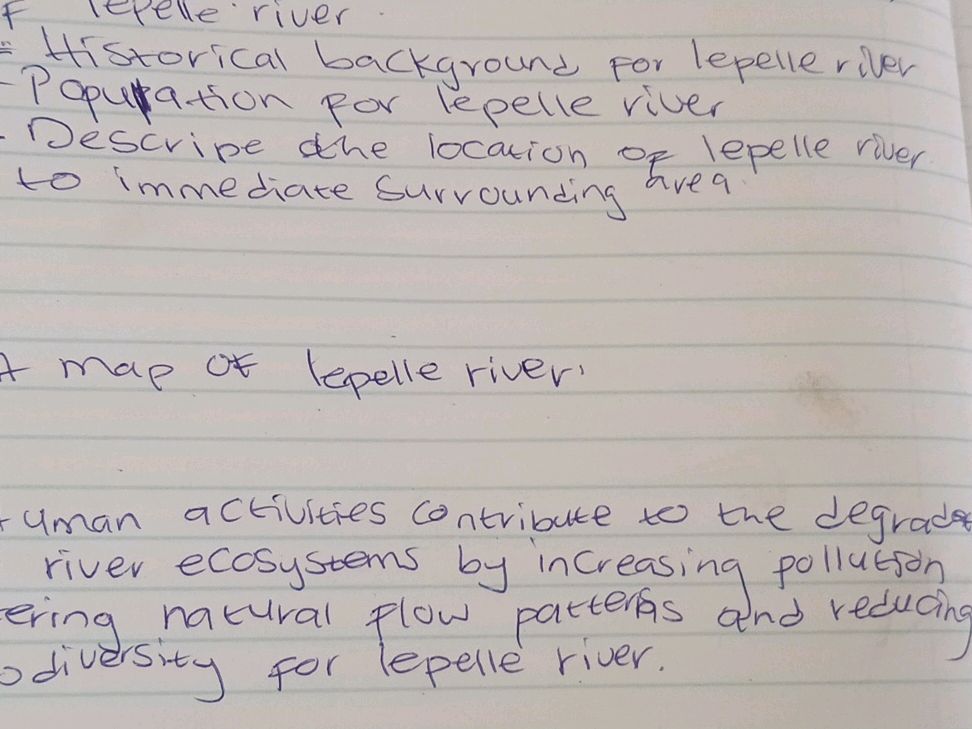 F lepelle river.
= Historical background for lepelle river
- Population for lepelle river
- Describe the location of lepelle river.
to immediate surrounding area.
A map of lepelle river.
Human activities contribute to the degrada
river ecosystems by increasing pollution
ering natural flow patterns and reducing
odiversity for lepelle river.